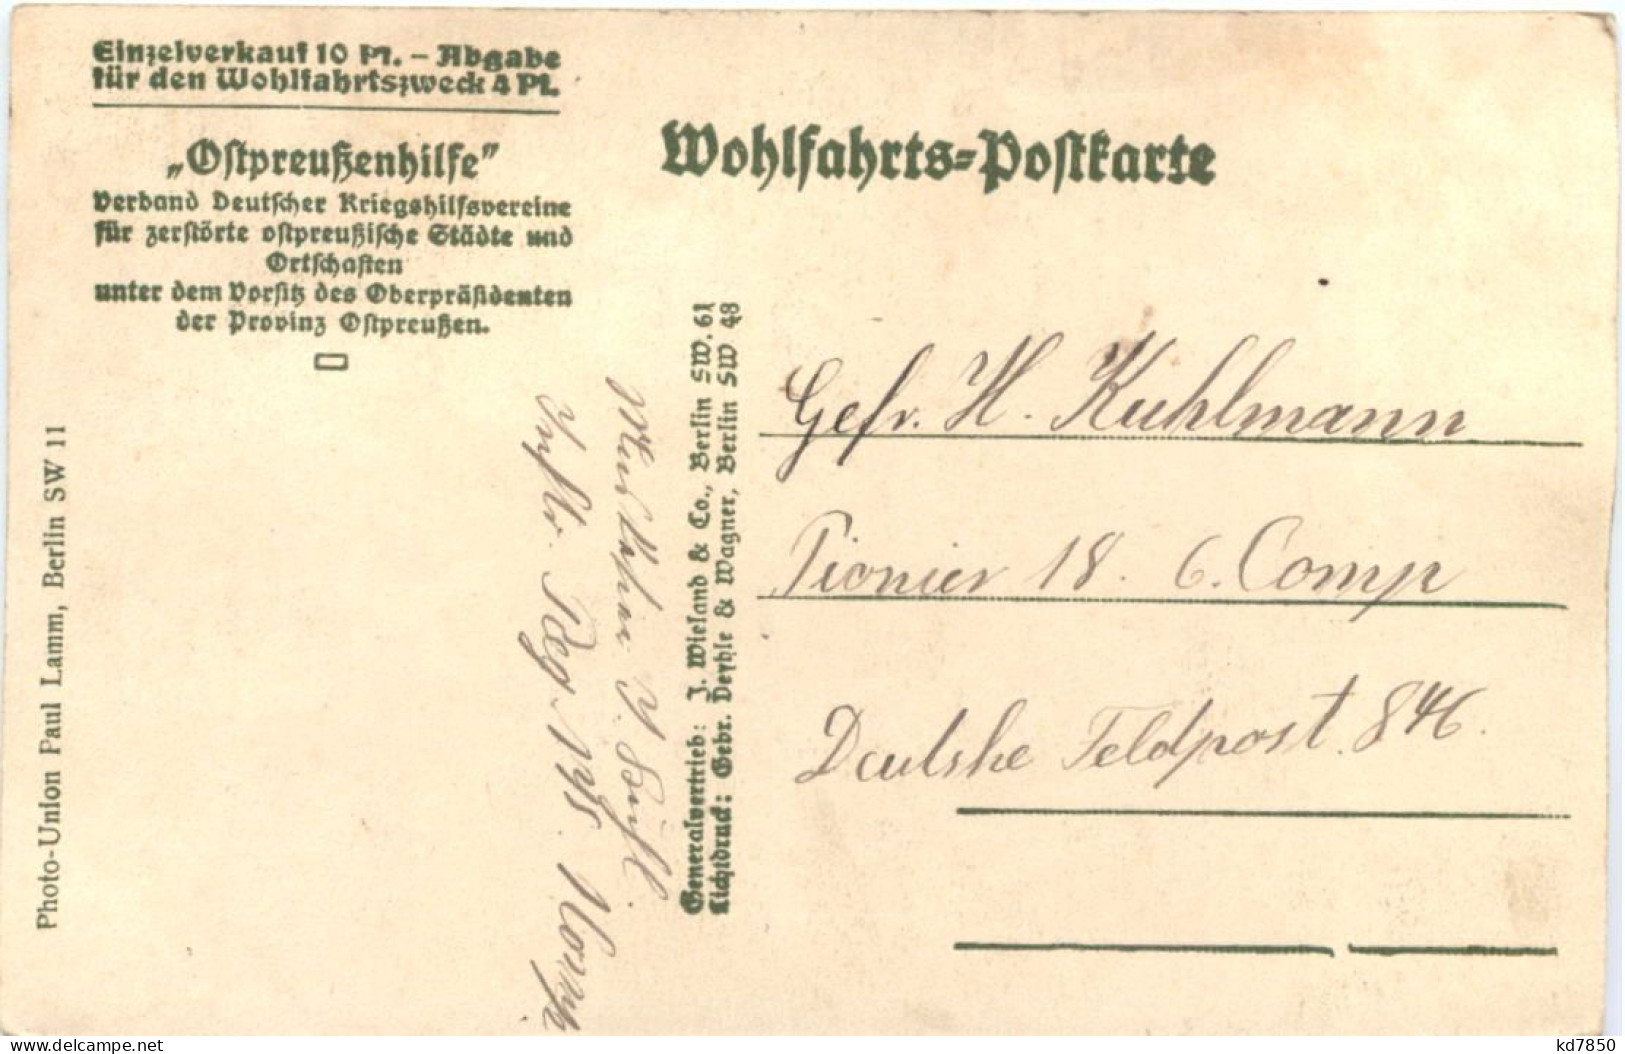 Einzelverkauf 10 Pf. – Abgabe
für den Wohlfahrtszweck 4 Pf.
„Oſtpreußenhilfe”
Verband Deutſcher Kriegshilfsvereine
für zerſtörte oſtpreußiſche Städte und
Ortſchaften
unter dem Vorſitz des Oberpräſidenten
der Provinz Oſtpreußen.
Wohlfahrts-Poſtkarte
Photo-Union Paul Lamm, Berlin SW 11
Generalvertrieb: J. Wieland & Co., Berlin SW. 61
Lichtdruck: Gebr. Deyhle & Wagner, Berlin SW 48
Reg.
Gefr. H. Kuhlmann
Pionier 18. 6. Comp
Deutshe Feldpost. 846.
kd7850